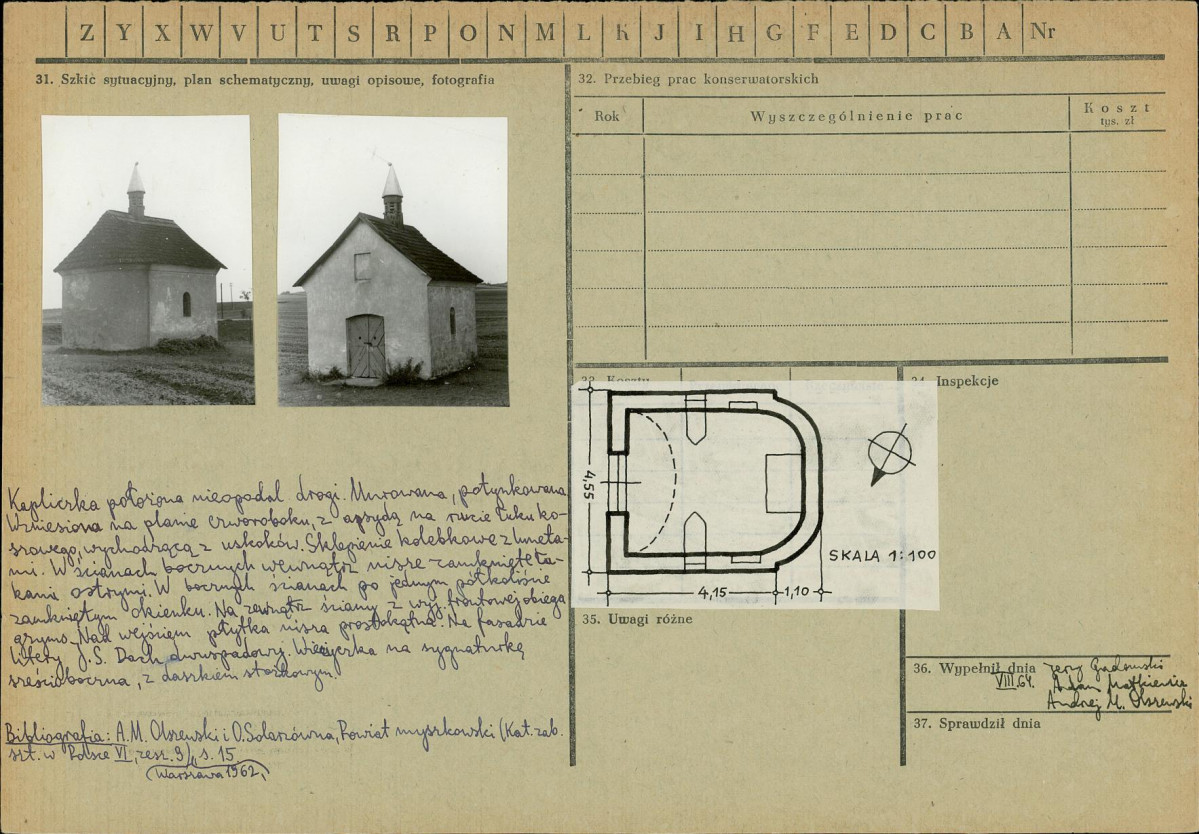 Z Y X W V U T S R P O N M L K J I H G F E D C B A Nr
31. Szkic sytuacyjny, plan schematyczny, uwagi opisowe, fotografia
Kapliczka położona nieopodal drogi. Murowana, potynkowana
Wzniesiona na planie czworoboku, z apsydą na rzucie łuku ko-
szowego, wychodzącą z uskoków. Sklepienie kolebkowe z luneta-
mi. W ścianach bocznych wewnątrz nisze zamknięte łu-
kami ostrymi. W bocznych ścianach po jednym półkoliście
zamkniętym okienku. Na zewnątrz ściany z wyj. frontowej obiega
gzyms. Nad wejściem płytka nisza prostokątna. Na fasadzie
litery J.S. Dach dwuspadowy. Wieżyczka na sygnaturkę
sześcioboczna, z daszkiem stożkowym.
Bibliografia: A.M. Olszewski i O. Solarzówna, Powiat myszkowski (Kat. zab.
szt. w Polsce VI, zesz. 9), s. 15
Warszawa 1962,
32. Przebieg prac konserwatorskich
Rok Wyszczególnienie prac Koszt
tys. zł
Koszty
Inspekcje
4,55
SKALA 1:100
4,15 1,10
35. Uwagi różne
36. Wypełnił dnia Jerzy Gadomski
VIII.64. Adam Małkiewicz
Andrzej M. Olszewski
37. Sprawdził dnia